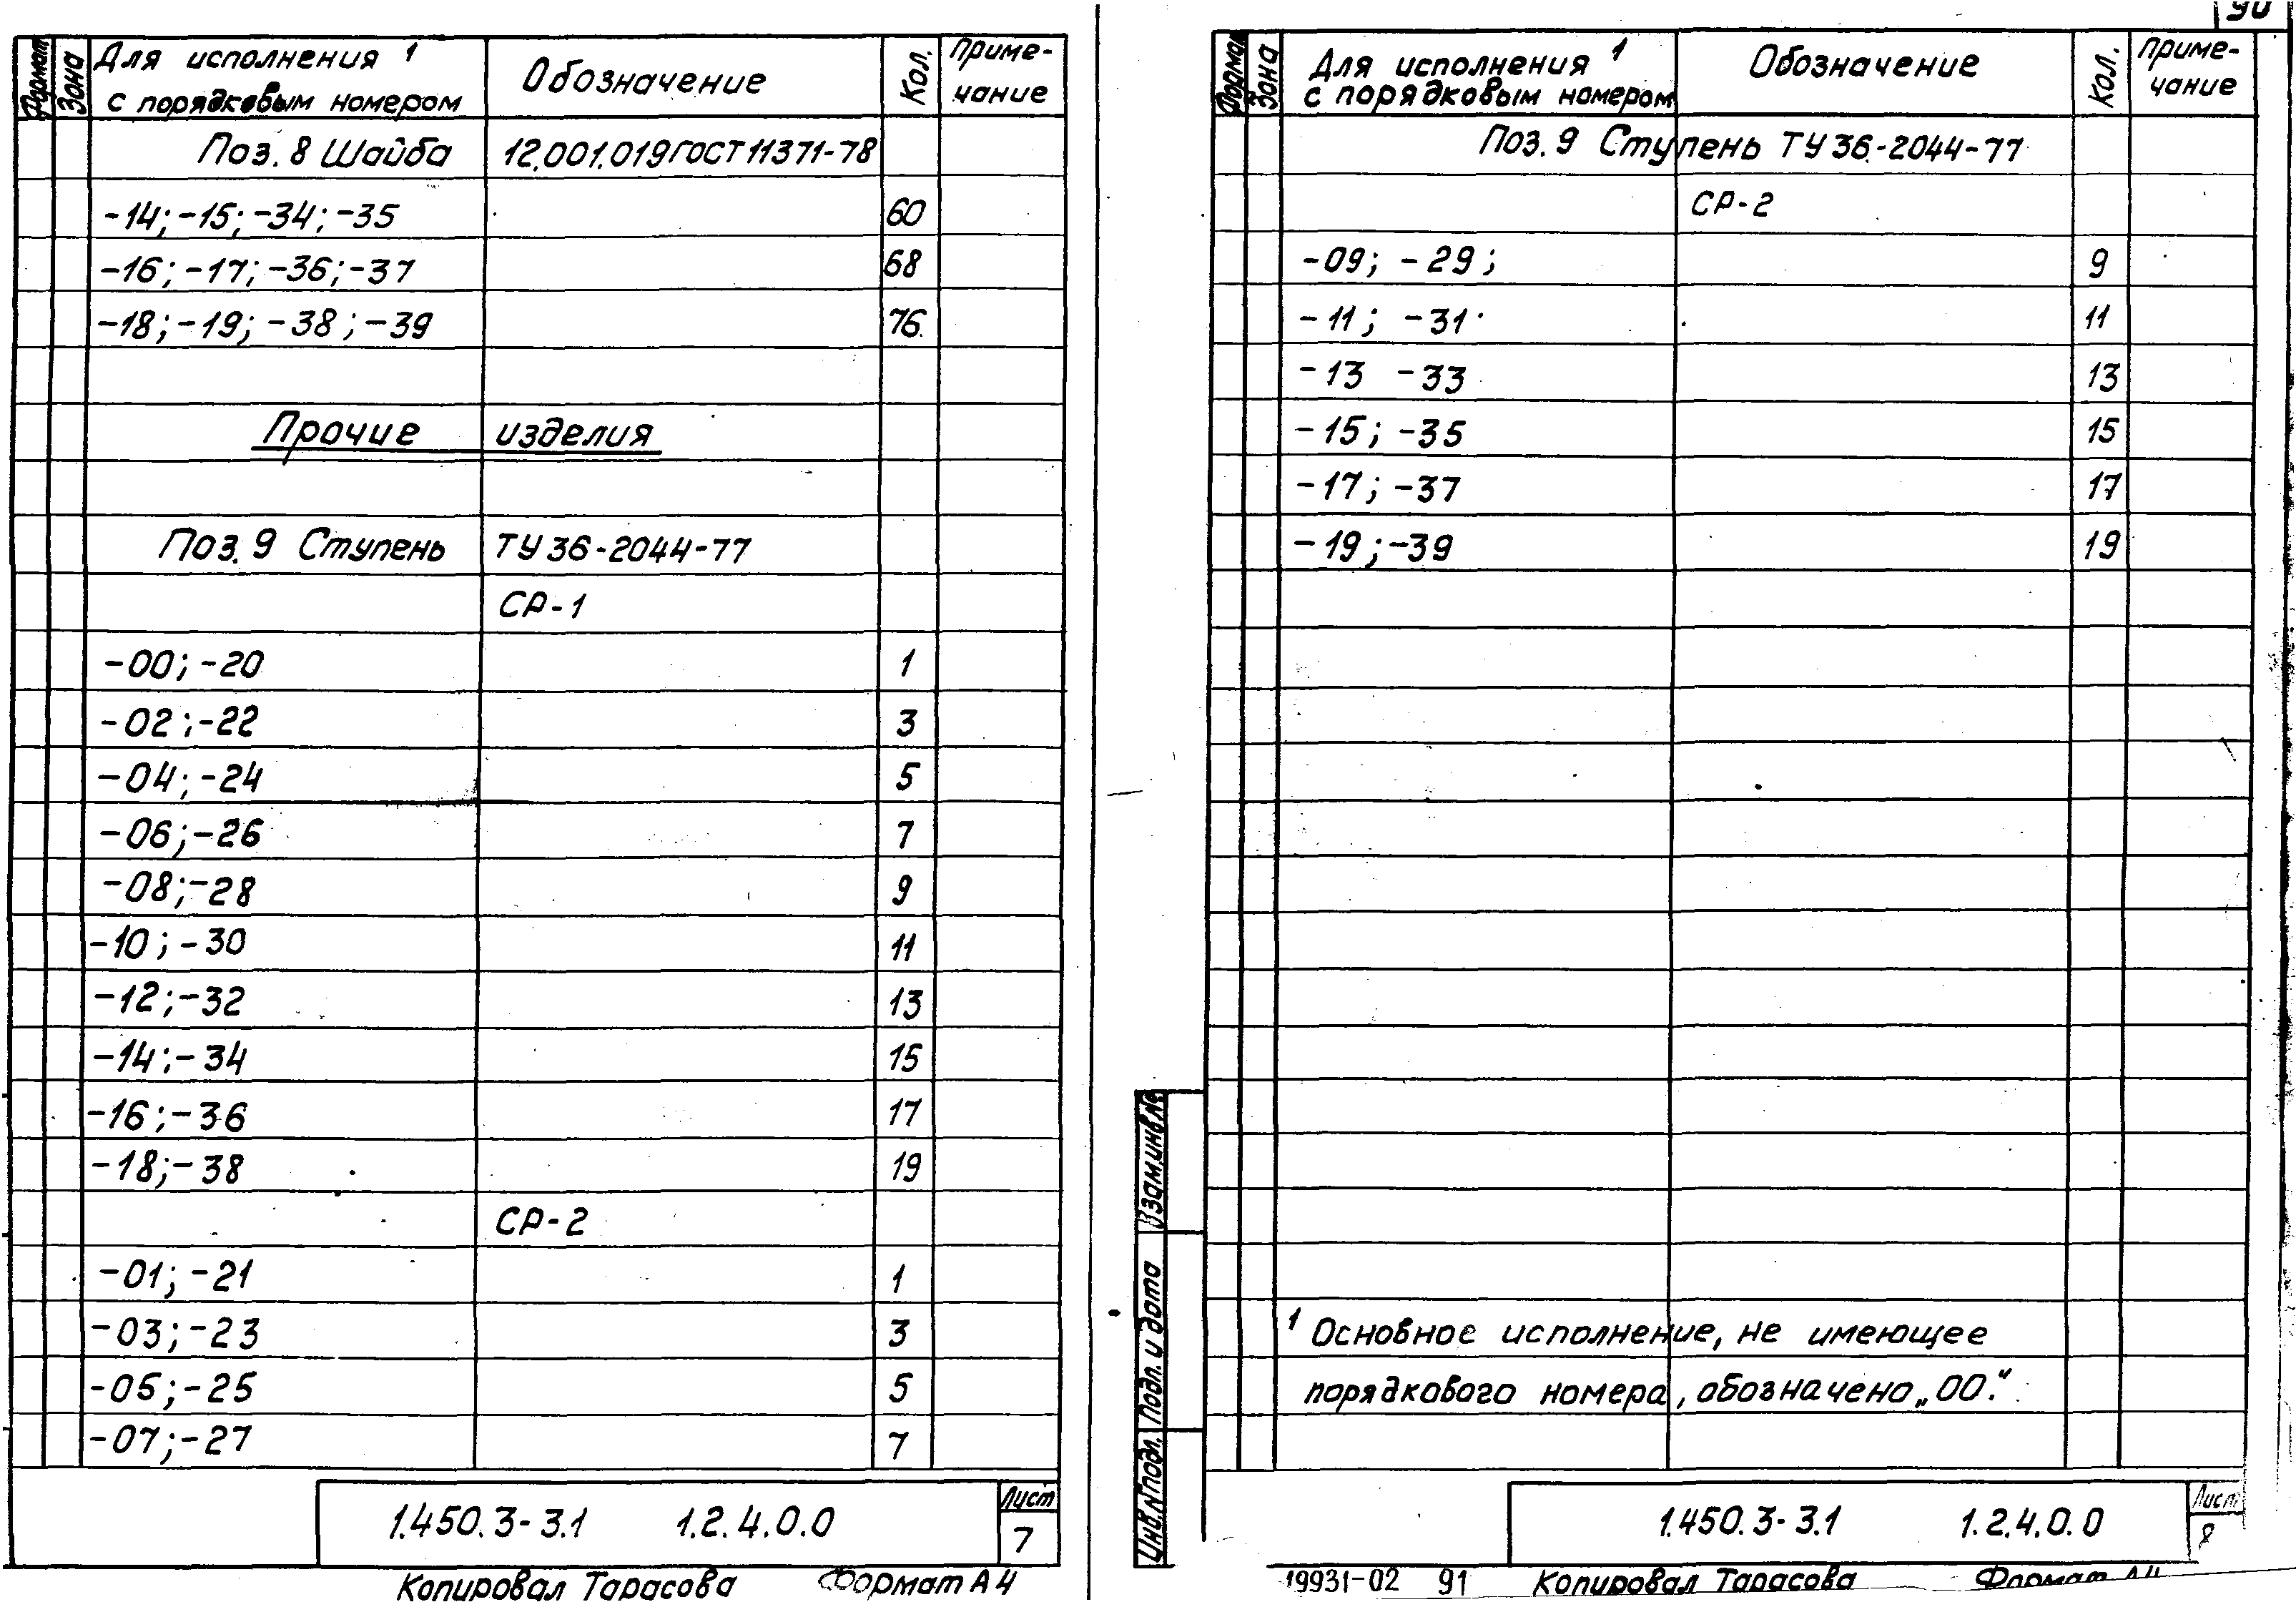 Формат Зона Для исполнения 1 с порядковым номером Обозначение Кол. Приме-чание
Поз. 8 Шайба 12.001.019 ГОСТ 11371-78
-14; -15; -34; -35 60
-16; -17; -36; -37 68
-18; -19; -38; -39 76
Прочие изделия
Поз. 9 Ступень ТУ 36-2044-77
СР-1
-00; -20 1
-02; -22 3
-04; -24 5
-06; -26 7
-08; -28 9
-10; -30 11
-12; -32 13
-14; -34 15
-16; -36 17
-18; -38 19
СР-2
-01; -21 1
-03; -23 3
-05; -25 5
-07; -27 7
1.450.3-3.1 1.2.4.0.0 Лист 7
Копировал Тарасова Формат А4
90
Формат Зона Для исполнения 1 с порядковым номером Обозначение Кол. Приме-чание
Поз. 9 Ступень ТУ 36-2044-77
СР-2
-09; -29; 9
-11; -31 11
-13 -33 13
-15; -35 15
-17; -37 17
-19; -39 19
1 Основное исполнение, не имеющее
порядкового номера, обозначено „00.“
Взам.инв.№
Подп. и дата
Инв.№подл.
1.450.3-3.1 1.2.4.0.0 Лист 8
19931-02 91 Копировал Тарасова Формат А4